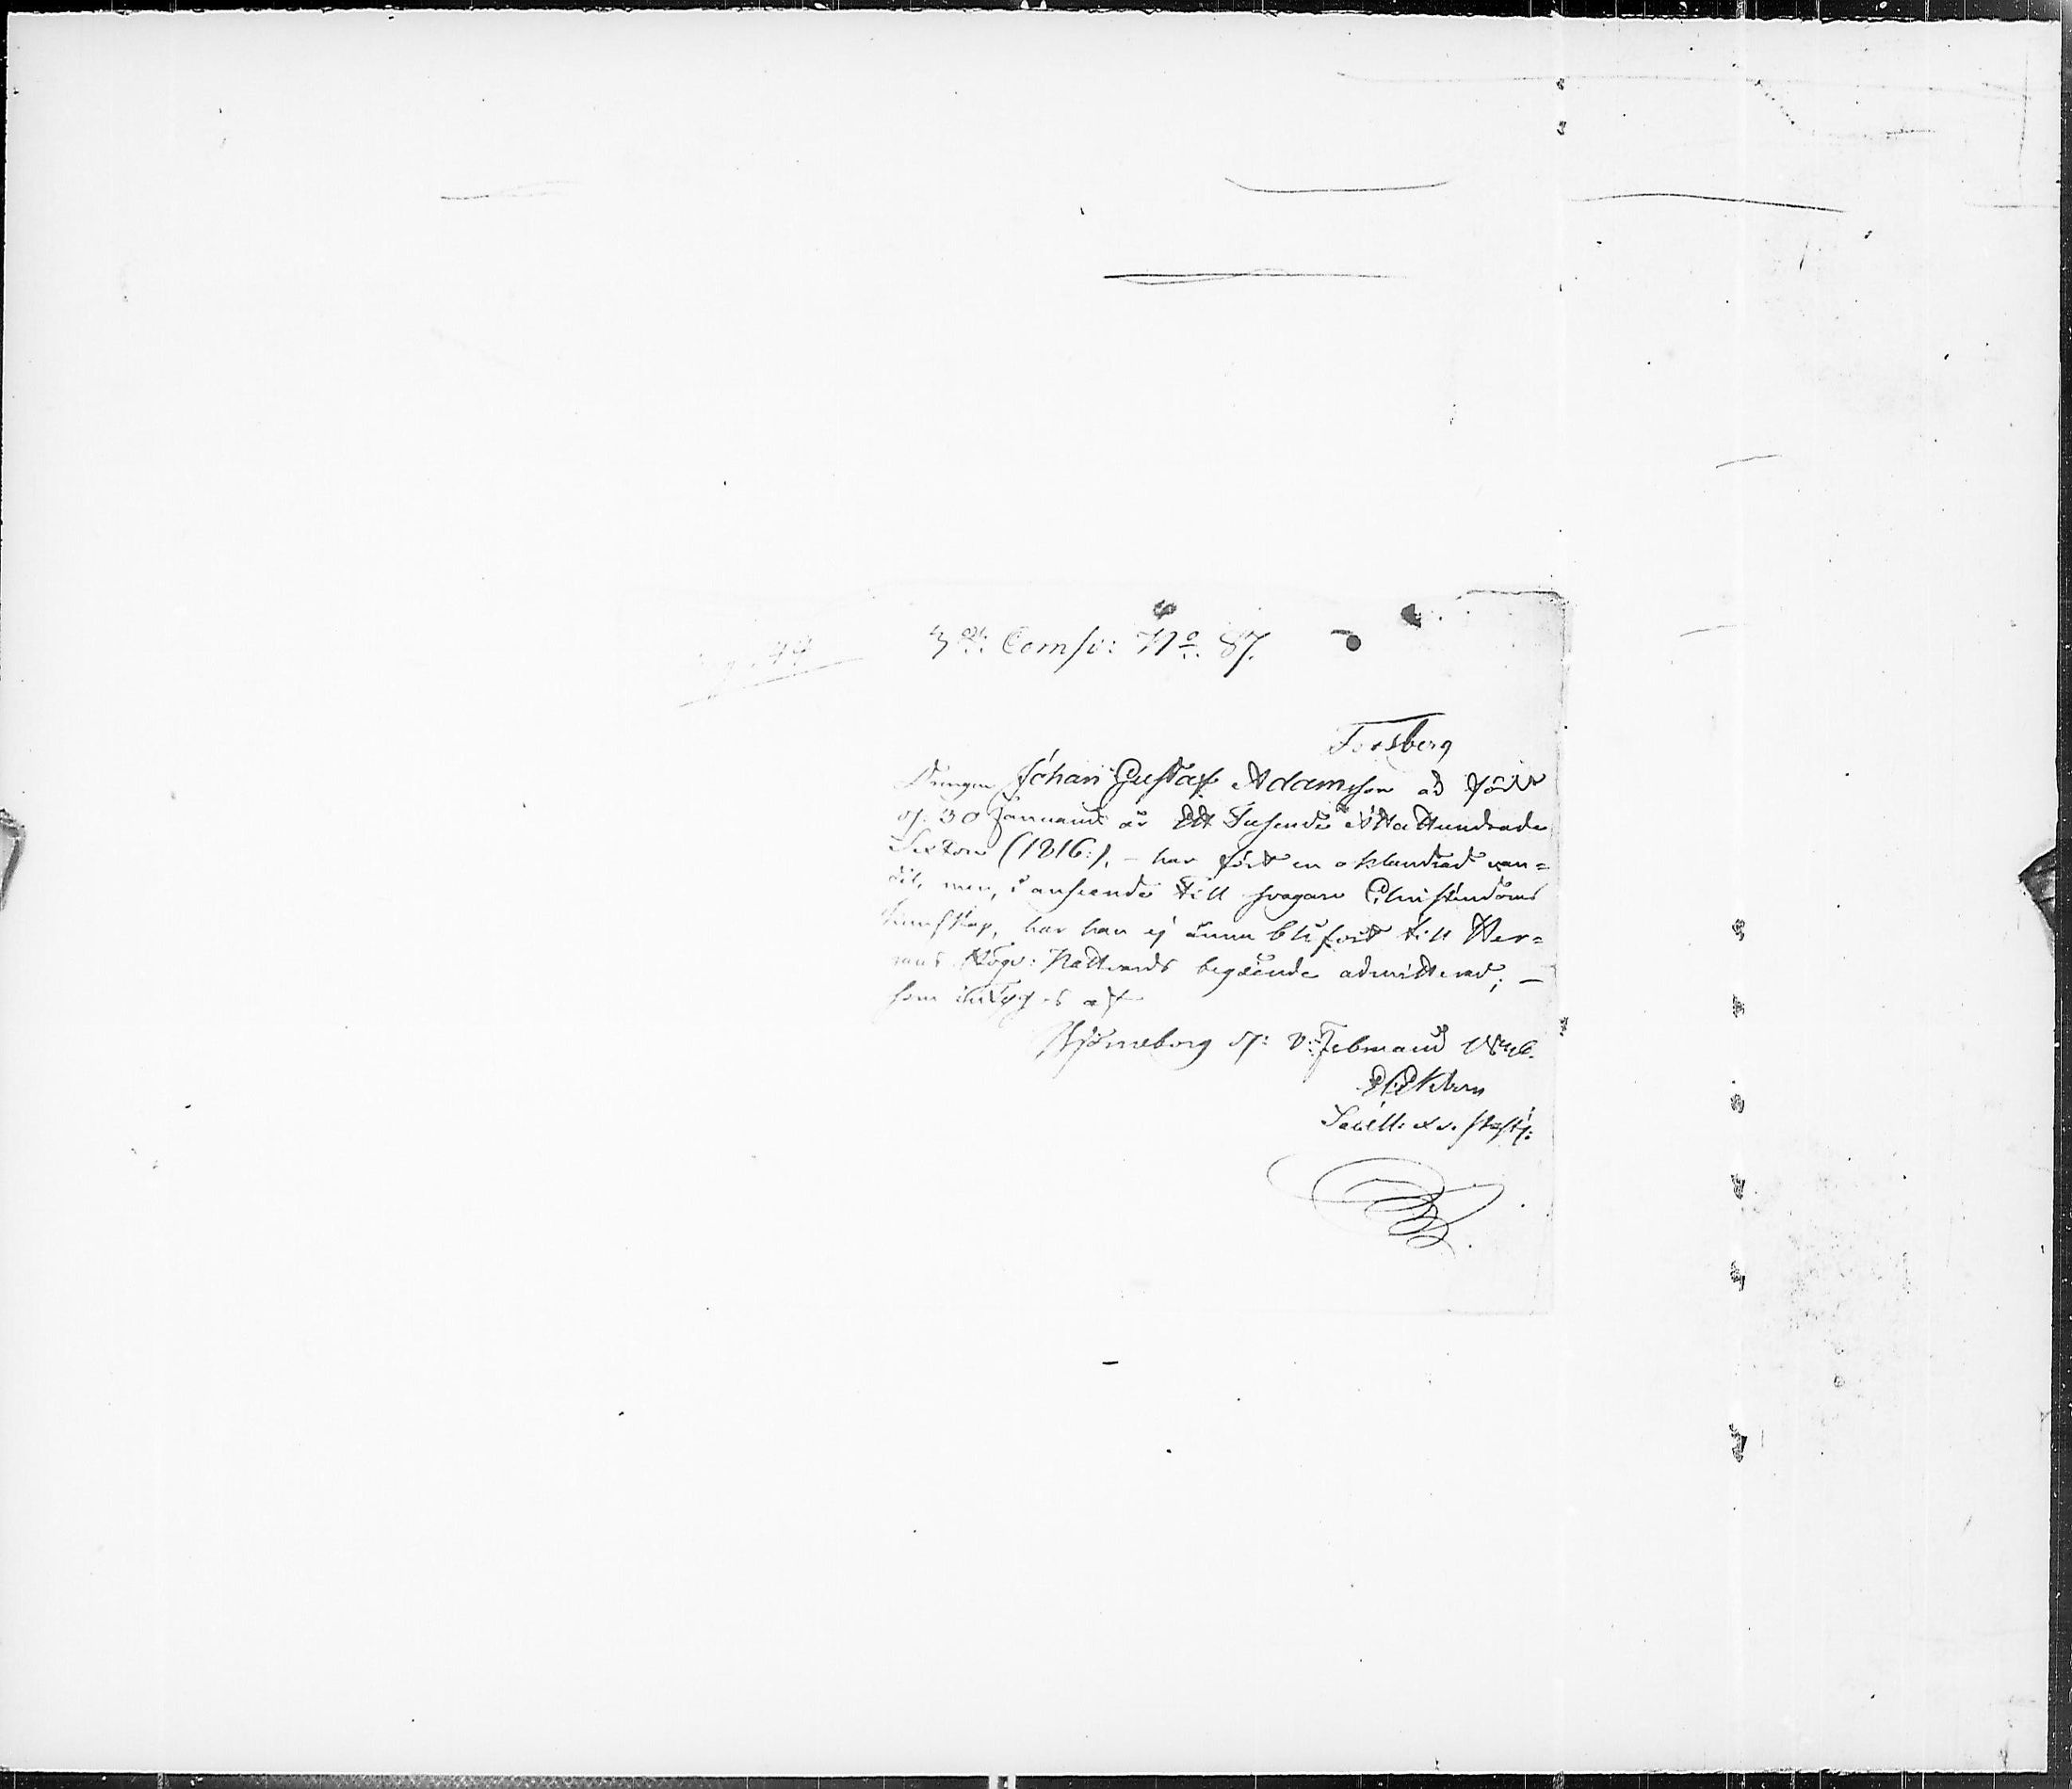 3dj: Comp: No. 87.
Forsberg
Drengen Johan Gustaf Adamsson är född
d. 30 Januarii år Ett Tusende Åtta Hundrade
Sexton (1816:), – har fört en oklandrad van=
del, men, i anseende till svagare Christendoms
kunskap, har han ej ännu blifvit till Her=
rans Högv: Nattvards begående admitterad; –
som intygas af
Björneborg d: Februarii